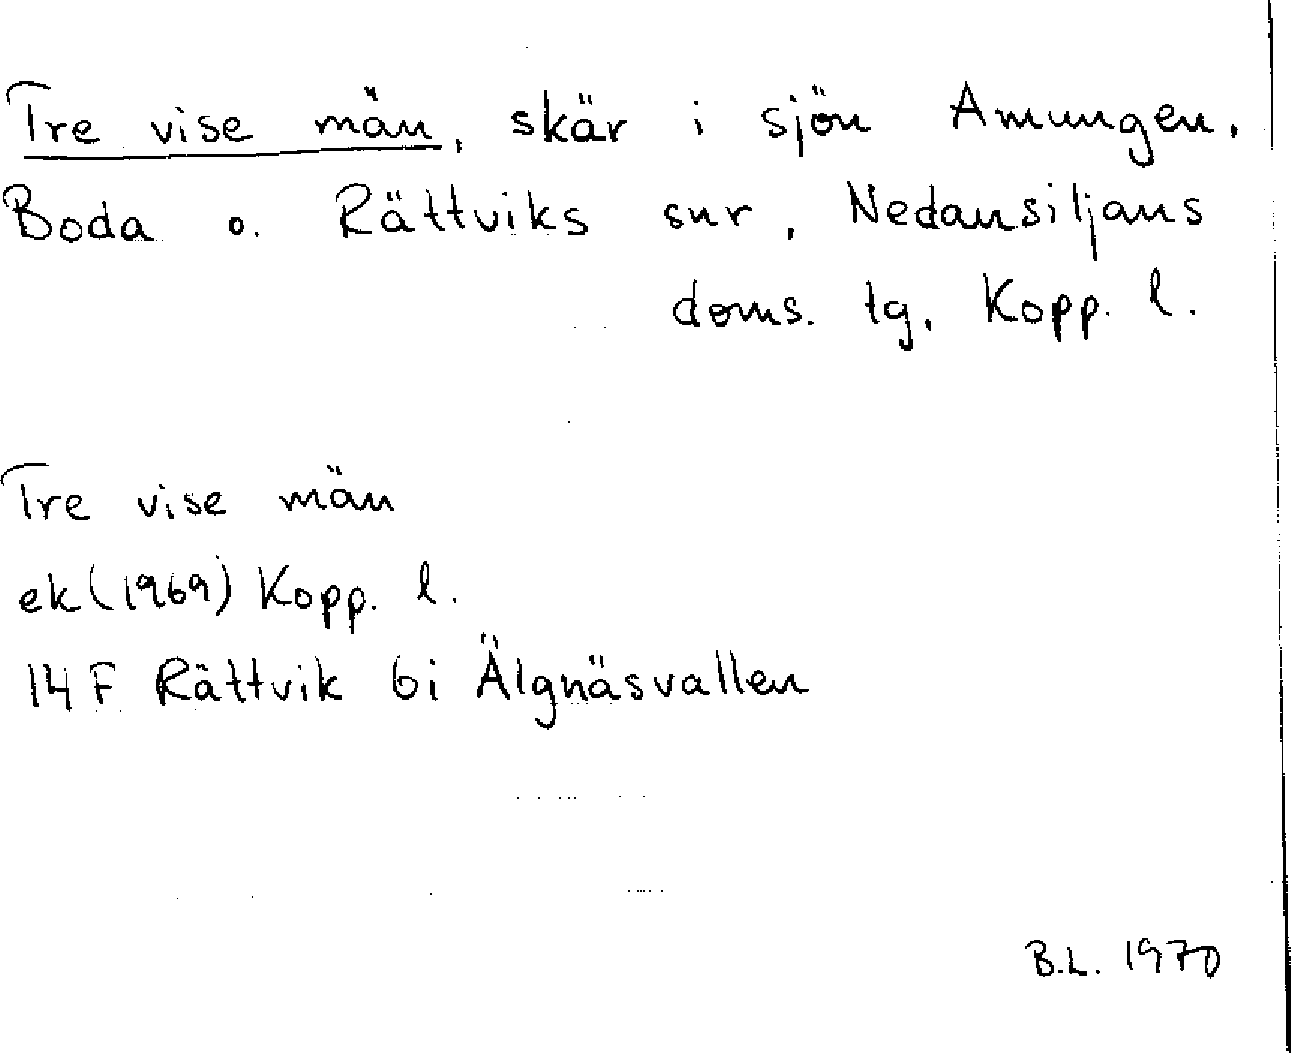 Tre vise män, skär i sjön Amungen,
Boda o. Rättviks snr, Nedansiljans
doms. tg, Kopp. l.
Tre vise män
ek (1969) Kopp. l.
14 F Rättvik 6i Älgnäsvallen
B.L. 1970